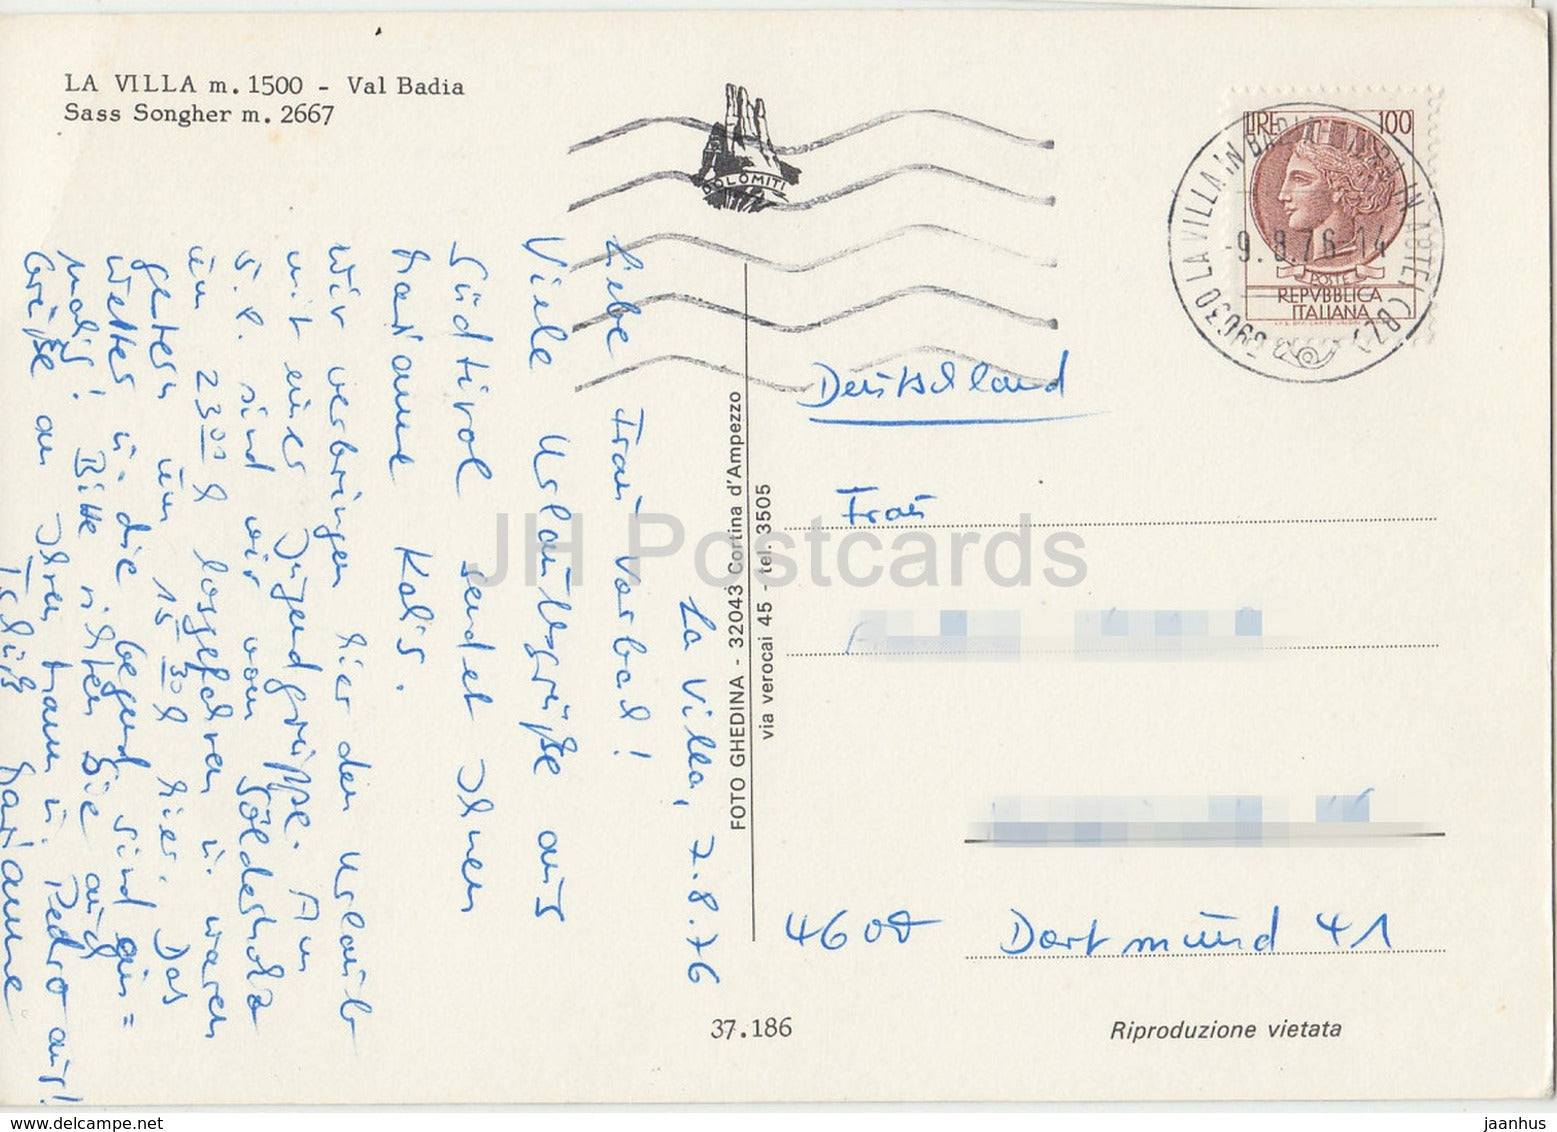 LA VILLA m. 1500 - Val Badia
Sass Songher m. 2667
DOLOMITI
LIRE 100
POSTE
REPVBBLICA
ITALIANA
39030 LA VILLA IN BADIA (BZ)
-9.8.76-14
La Villa, 7.8.76
Liebe Frau Vorbad!
Viele Urlaubsgrüße aus
Südtirol sendet Ihnen
Marianne Kolis.
Wir verbringen hier den Urlaub
mit einer Jugendgruppe. Am
5.8. sind wir vom Sölderholz
um 23⁰⁰ h losgefahren u. waren
gestern um 15³⁰ h hier. Das
Wetter u. die Gegend sind ein=
malig! Bitte richten Sie auch
Grüße an Ihren Mann u. Pedro aus!
Tschüß Marianne
FOTO GHEDINA - 32043 Cortina d'Ampezzo
via verocai 45 - tel. 3505
Deutschland
Frau
4600 Dortmund 41
37.186
Riproduzione vietata
JH Postcards
jaanhus